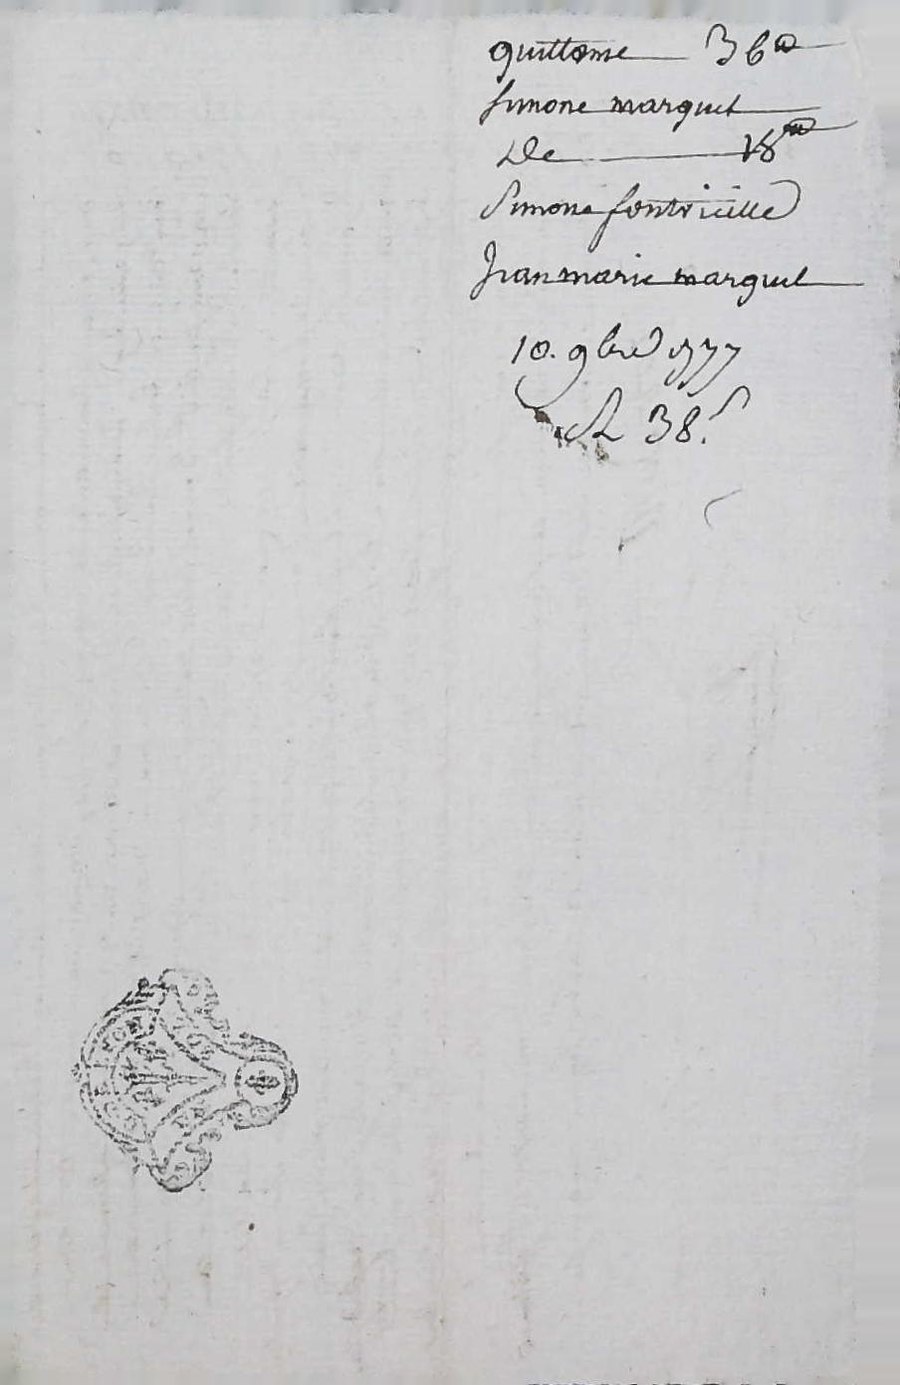 quittance 36#
Simone marquet
De 18#
Simone fontvieille
Jean marie marquet
10. 9bre 1777
R 38.s
LYON